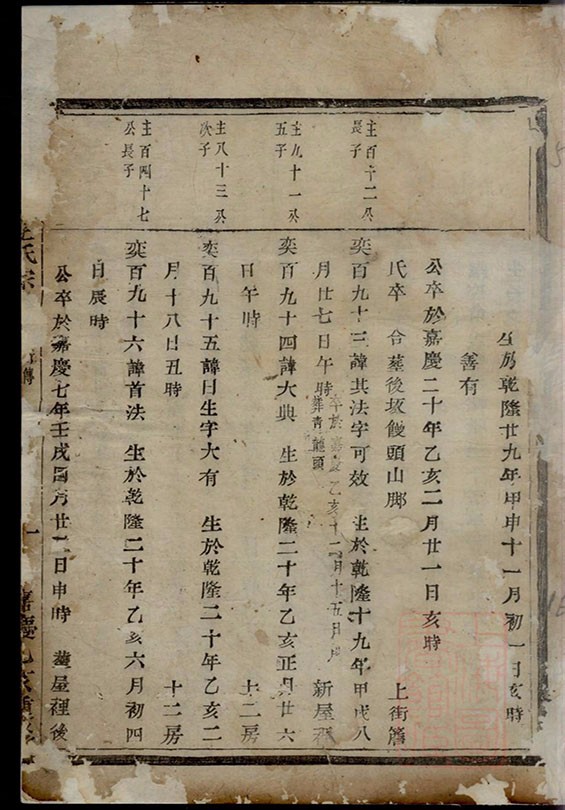 生於乾隆廿九年甲申十一月初一日亥時
善有
公卒於嘉慶二十年乙亥二月廿一日亥時 上街簷
氏卒 合墓後坂饅頭山脚
圭百十二公
長子
奕百九十三諱其法字可效 生於乾隆十九年甲戌八
月廿七日午時 卒於嘉慶乙亥十二月十五月 葬青龍頭 新屋裡
圭九十一公
五子
奕百九十四諱大典 生於乾隆二十年乙亥正月廿六
日午時 十二房
圭八十三公
次子
奕百九十五諱日生字大有 生於乾隆二十年乙亥二
月十八日丑時 十二房
圭百四十七
公長子
奕百九十六諱首法 生於乾隆二十年乙亥六月初四
日辰時
公卒於嘉慶七年壬戌四月廿二日申時 塟屋裡後
氏宗
傳
一
嘉慶乙亥重修